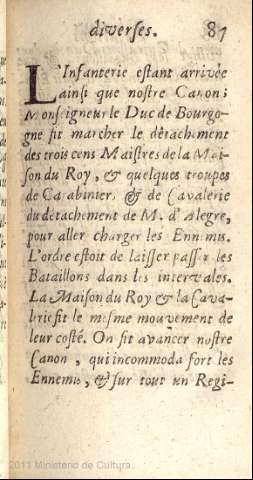 diverses. 87
L'Infanterie estant arrivée
ainsi que nostre Canon;
Monseigneur le Duc de Bourgo-
gne fit marcher le détachement
des trois cens Maistres de la Mai-
son du Roy, & quelques troupes
de Carabinier. & de Cavalerie
du détachement de M. d'Alegre,
pour aller charger les Ennemis.
L'ordre estoit de laisser passer les
Bataillons dans les intervales.
La Maison du Roy & la Cava-
lerie fit le mesme mouvement de
leur costé. On fit avancer nostre
Canon, qui incommoda fort les
Ennemis, & sur tout un Regi-
2011 Ministerio de Cultura